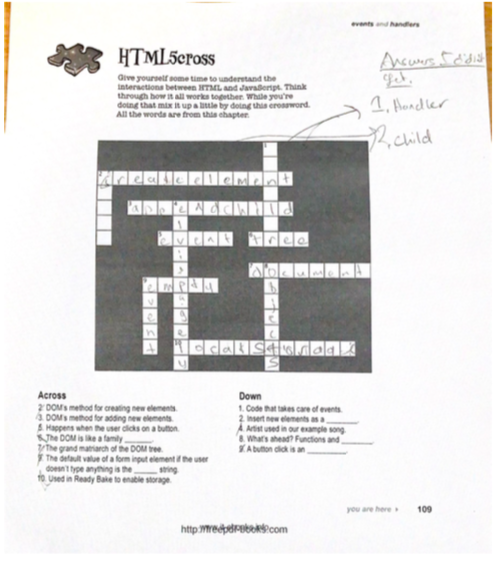 events and handlers
HTML5cross
Answers I didnt
get.
Give yourself some time to understand the
interactions between HTML and JavaScript. Think
through how it all works together. While you're
doing that mix it up a little by doing this crossword.
All the words are from this chapter.
1. Handler
2. Child
createelement
appendchild
event tree
document
empty
localStorage
Across
2. DOM's method for creating new elements.
3. DOM's method for adding new elements.
5. Happens when the user clicks on a button.
6. The DOM is like a family ______.
7. The grand matriarch of the DOM tree.
9. The default value of a form input element if the user
doesn't type anything is the ______ string.
10. Used in Ready Bake to enable storage.
Down
1. Code that takes care of events.
2. Insert new elements as a ______.
4. Artist used in our example song.
8. What's ahead? Functions and ______.
9. A button click is an ______.
you are here 109